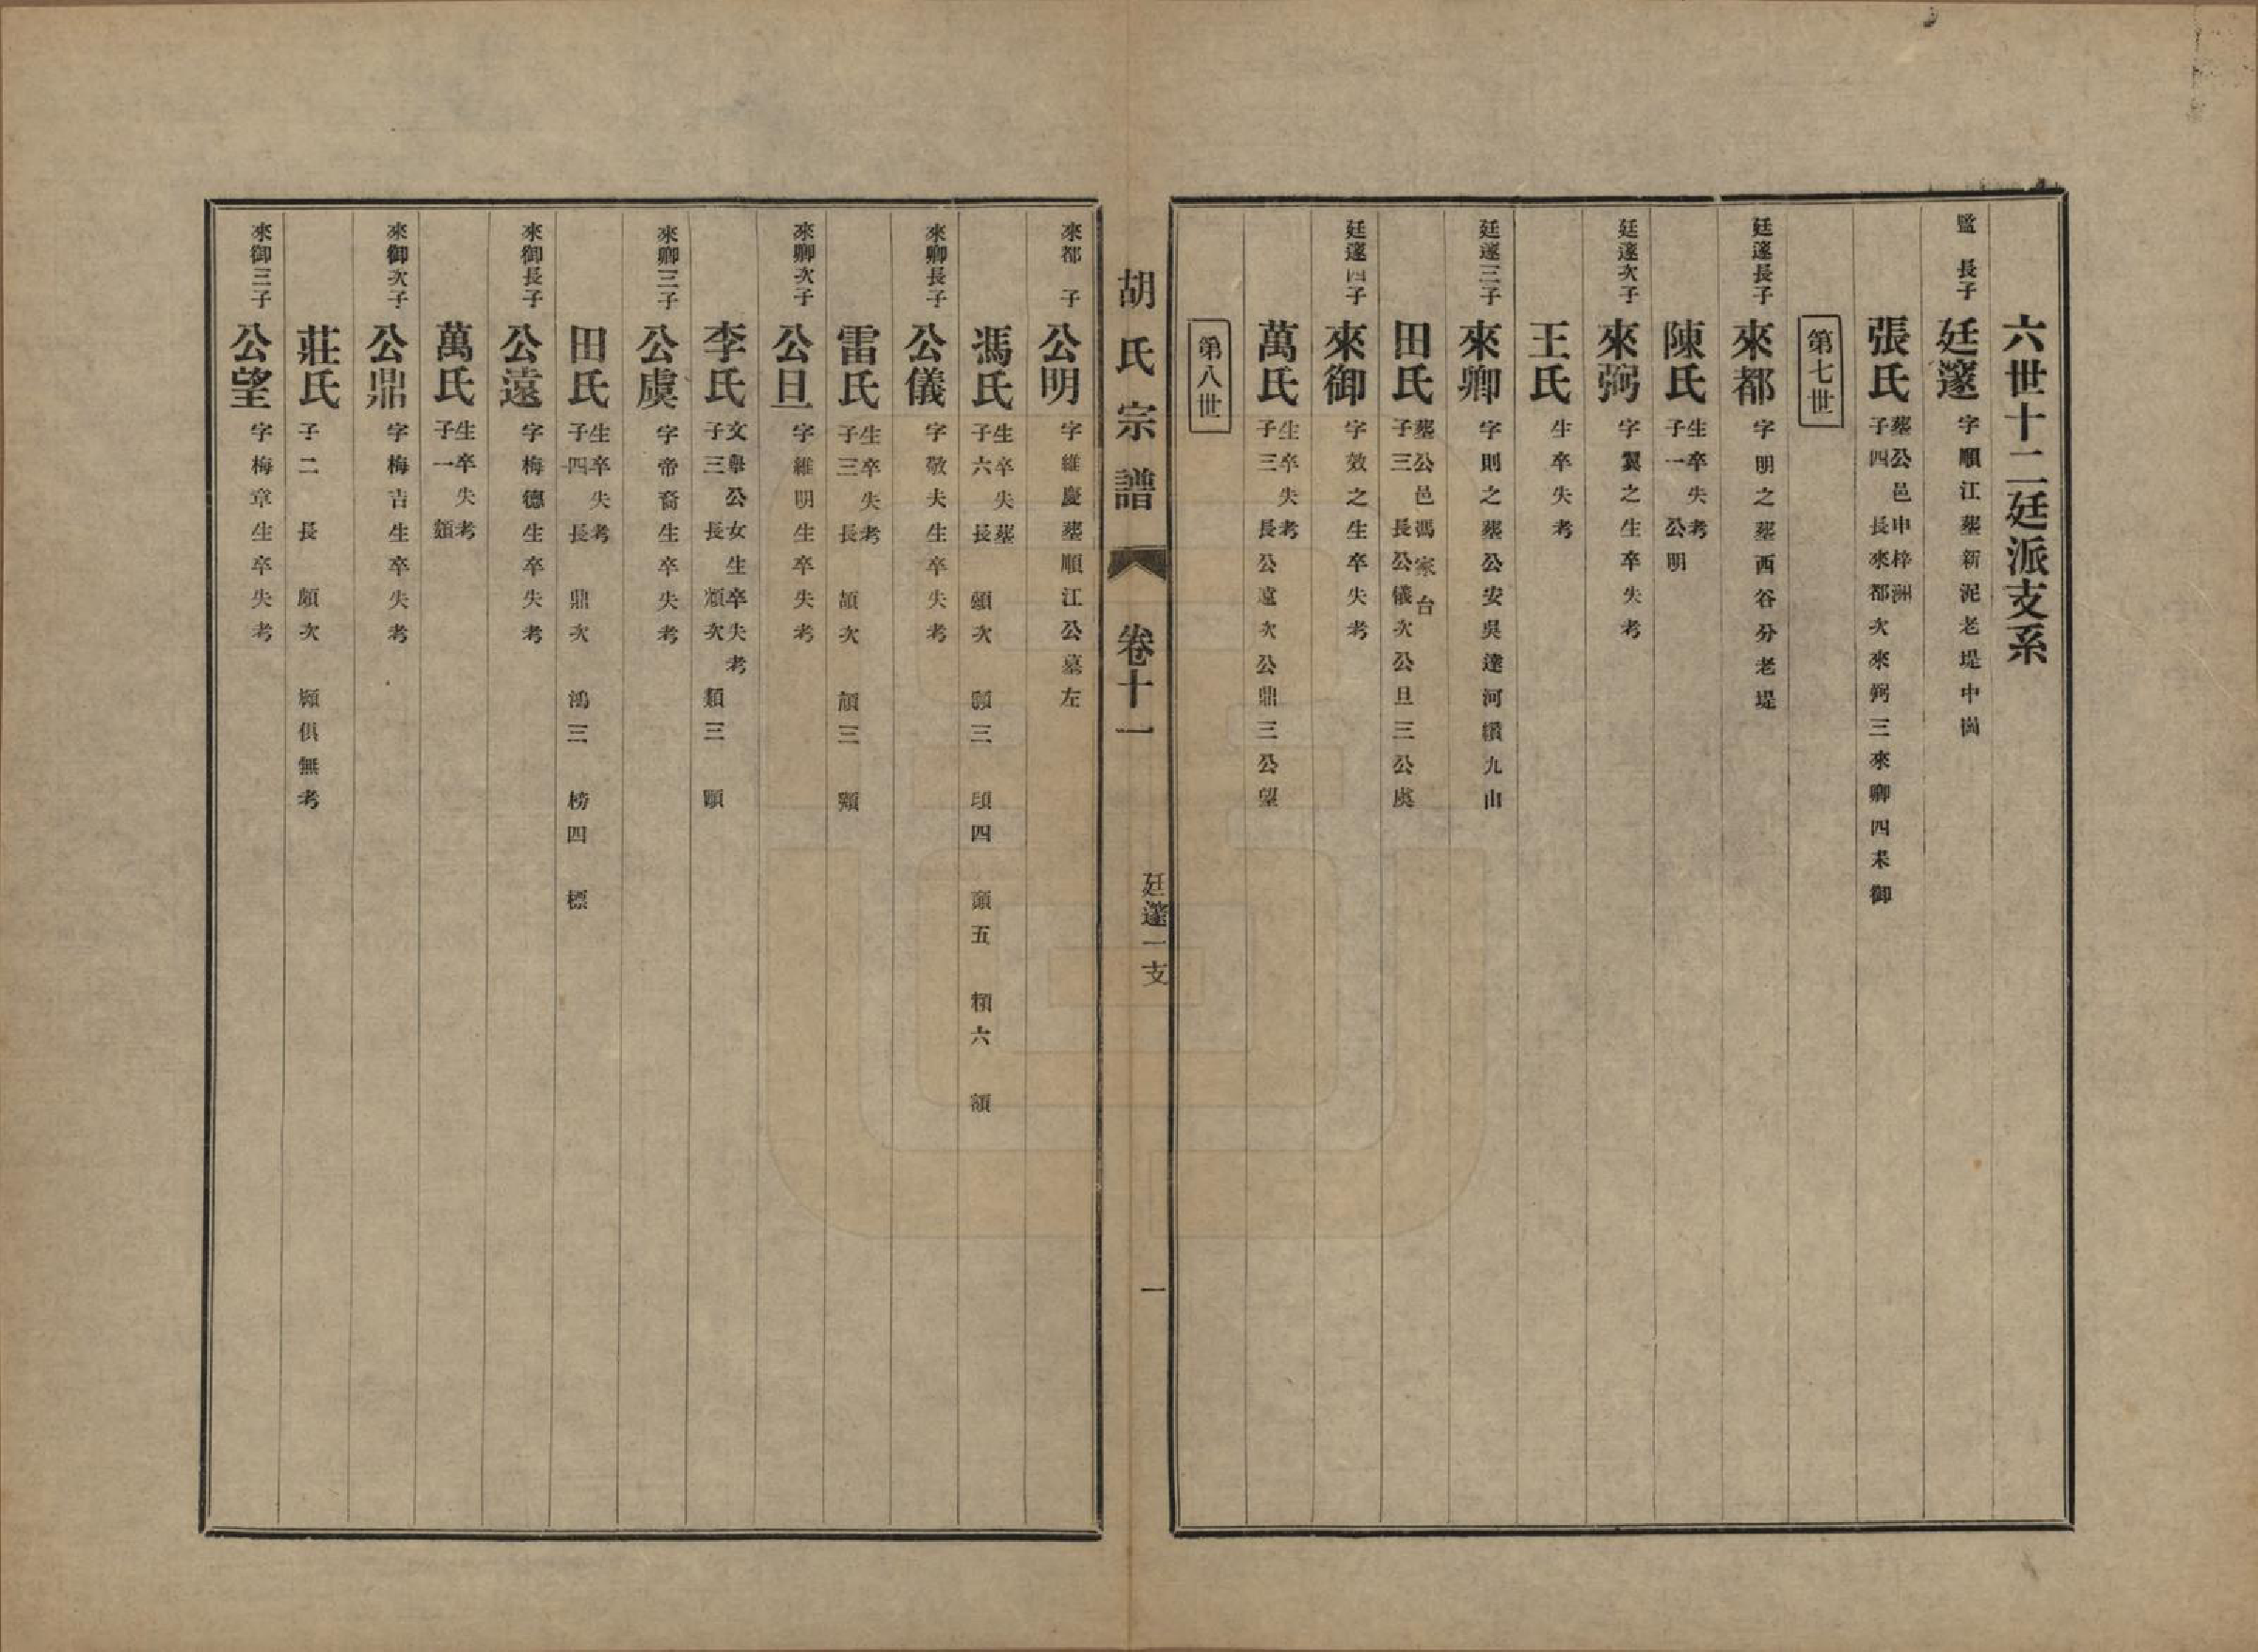 六世十二廷派支系
監長子 廷邃 字順江墓新泥老堤中崗
張氏 墓公邑申梓洲 子四 長來都次來弼三來卿四來御
第七世
廷邃長子 來都 字明之墓西谷分老堤
陳氏 生卒失考 子一 公明
廷邃次子 來弼 字翼之生卒失考
王氏 生卒失考
廷邃三子 來卿 字則之墓公安吳達河纘九山
田氏 墓公邑馮家台 子三 長公儀次公旦三公虞
廷邃四子 來御 字效之生卒失考
萬氏 生卒失考 子三 長公遠次公鼎三公望
第八世
胡氏宗譜 卷十一 廷邃一支 一
來都子 公明 字維慶墓順江公墓左
馮氏 生卒失墓 子六 長頭次顥三頊四 五 六額
來卿長子 公儀 字敬夫生卒失考
雷氏 生卒失考 子三 長頡次頏三
來卿次子 公旦 字維明生卒失考
李氏 文舉公女生卒失考 子三 長 次類三頤
來卿三子 公虞 字帝裔生卒失考
田氏 生卒失考 子四 長鼎次鴻三榜四標
來御長子 公遠 字梅德生卒失考
萬氏 生卒失考 子一 顏
來御次子 公鼎 字梅吉生卒失考
莊氏 子二 長頗次願俱無考
來御三子 公望 字梅章生卒失考